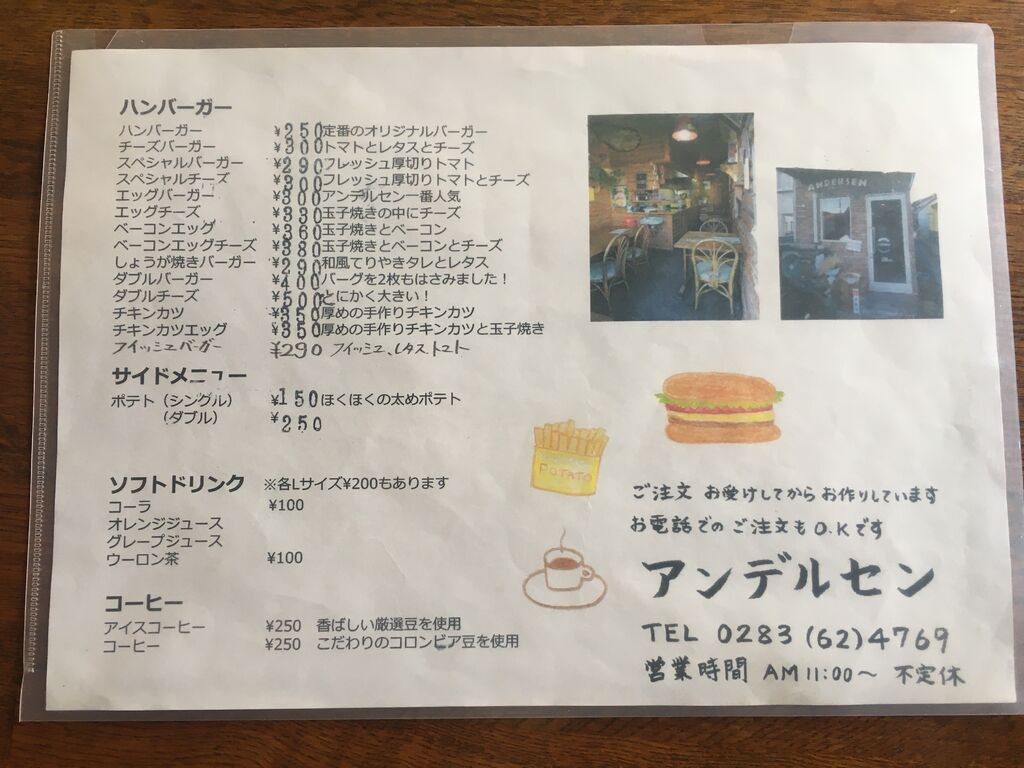 ハンバーガー
ハンバーガー ¥250 定番のオリジナルバーガー
チーズバーガー ¥300 トマトとレタスとチーズ
スペシャルバーガー ¥290 フレッシュ厚切りトマト
スペシャルチーズ ¥300 フレッシュ厚切りトマトとチーズ
エッグバーガー ¥300 アンデルセン一番人気
エッグチーズ ¥330 玉子焼きの中にチーズ
ベーコンエッグ ¥360 玉子焼きとベーコン
ベーコンエッグチーズ ¥380 玉子焼きとベーコンとチーズ
しょうが焼きバーガー ¥290 和風てりやきタレとレタス
ダブルバーガー ¥400 バーグを2枚もはさみました!
ダブルチーズ ¥500 とにかく大きい!
チキンカツ ¥350 厚めの手作りチキンカツ
チキンカツエッグ ¥350 厚めの手作りチキンカツと玉子焼き
フィッシュバーガー ¥290 フィッシュ、レタス、トマト
サイドメニュー
ポテト(シングル) ¥150 ほくほくの太めポテト
(ダブル) ¥250
ソフトドリンク ※各Lサイズ¥200もあります
コーラ ¥100
オレンジジュース
グレープジュース
ウーロン茶 ¥100
コーヒー
アイスコーヒー ¥250 香ばしい厳選豆を使用
コーヒー ¥250 こだわりのコロンビア豆を使用
ANDERSEN
POTATO
ご注文 お受けしてから お作りしています
お電話での ご注文も O.Kです
アンデルセン
TEL 0283 (62) 4769
営業時間 AM 11:00〜 不定休